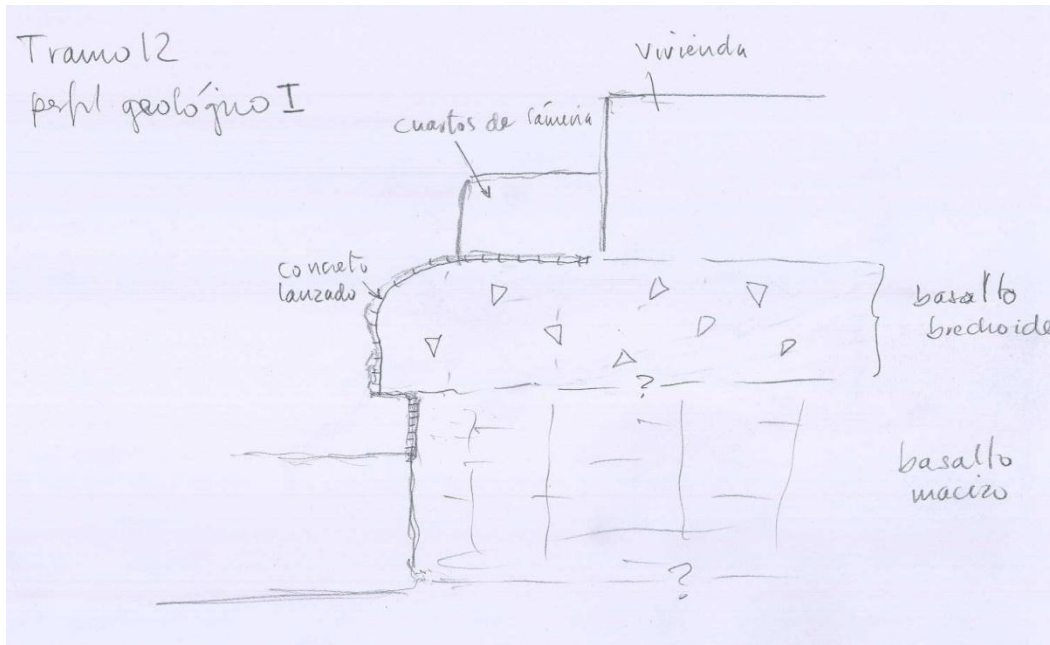 Tramo 12
perfil geológico I
vivienda
cuartos de
concreto
lanzado
basalto
brechoide
?
basalto
macizo
?